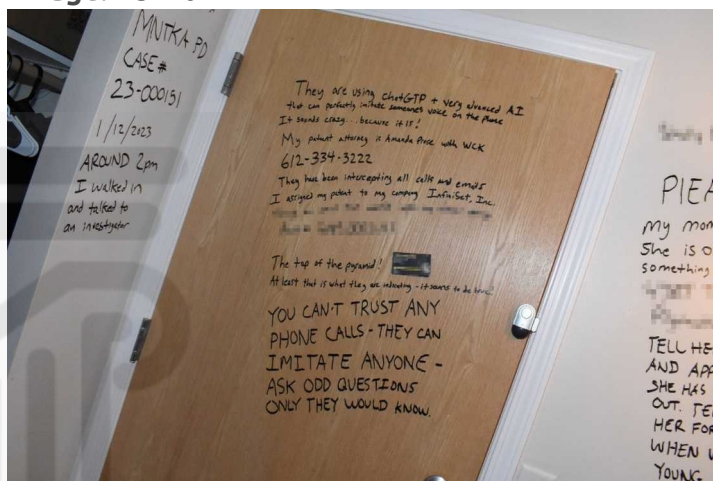 MNTKA PD
CASE#
23-000151
1/12/2023
AROUND 2pm
I walked in
and talked to
an investigator
They are using ChatGTP + very advanced A.I
that can perfectly imitate someones voice on the phone
It sounds crazy... because it is!
My patent attorney is Amanda Prose with WCK
612-334-3222
They have been intercepting all calls and emails
I assigned my patent to my company InfiniSet, Inc.
The top of the pyramid!
At least that is what they are indicating - it seems to be true!
YOU CAN'T TRUST ANY
PHONE CALLS - THEY CAN
IMITATE ANYONE -
ASK ODD QUESTIONS
ONLY THEY WOULD KNOW.
my mom
She is o
something
TELL HE
AND APP
SHE HAS
OUT. TE
HER FOR
WHEN W
YOUNG